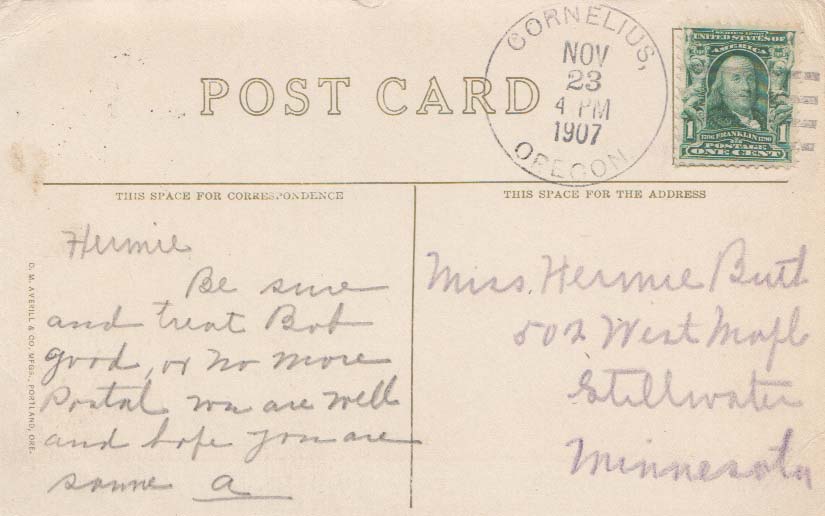 CORNELIUS,
NOV
23
4 PM
1907
OREGON
SERIES 1902
UNITED STATES OF
AMERICA
1706 FRANKLIN 1790
1 POSTAGE 1
ONE CENT
POST CARD
THIS SPACE FOR CORRESPONDENCE
THIS SPACE FOR THE ADDRESS
D. M. AVERILL & CO. MFGS., PORTLAND, ORE.
Hermie
Be sure
and treat Bob
good, or no more
Postal we are well
and hope you are
same a
Miss. Hermie Butt
502 West Mapl
Stillwater
Minnesota